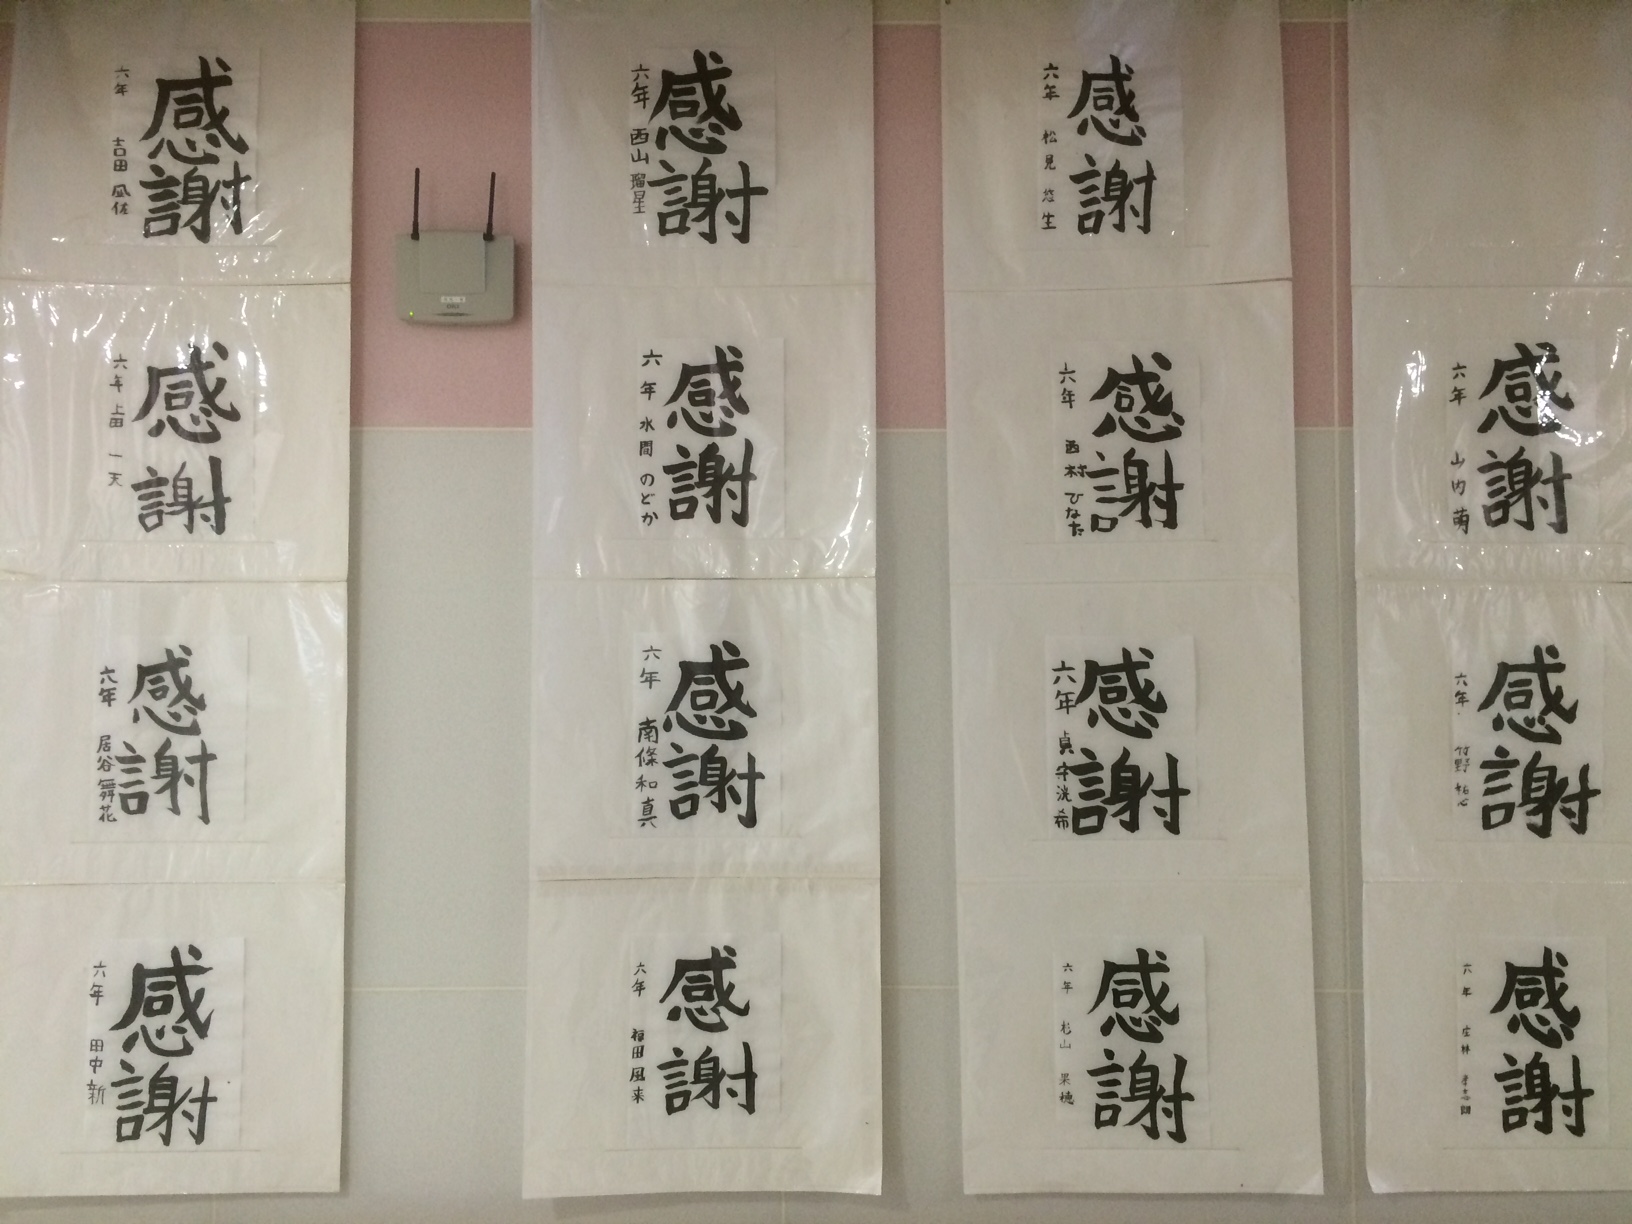 感謝
六年 吉田 凪佐
感謝
六年 西山 瑠星
感謝
六年 松見 悠生
感謝
六年 上田 一天
感謝
六年 水間 のどか
感謝
六年 西村 ひなた
感謝
六年 山内 萌
感謝
六年 居谷 舞花
感謝
六年 南條 和真
感謝
六年 貞守 洸希
感謝
六年 竹野
感謝
六年 田中 新
感謝
六年 福田 風来
感謝
六年 杉山 果穂
感謝
六年